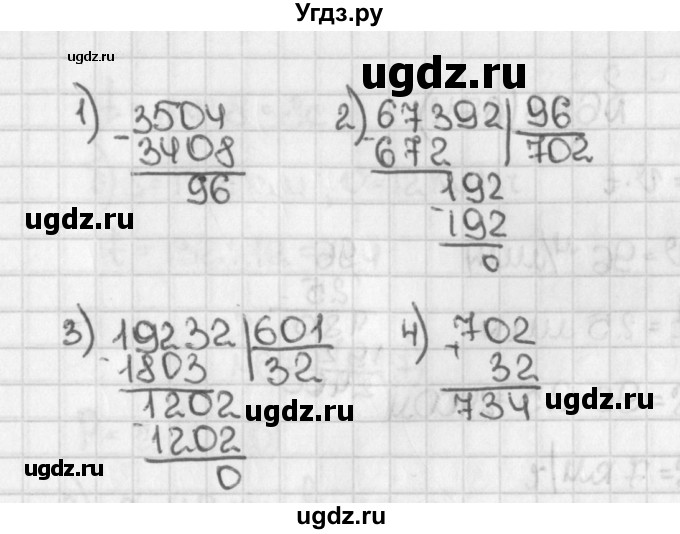 Угдз.ру
ugdz.ru
ugdz.ru
1) - 3504
3408
96
2) - 67392 | 96
672 702
- 192
192
0
ugdz.ru
ugdz.ru
3) - 19232 | 601
1803 32
- 1202
1202
0
4) + 702
32
734
ugdz.ru
ugdz.ru
ugdz.ru
ugdz.ru
ugdz.ru